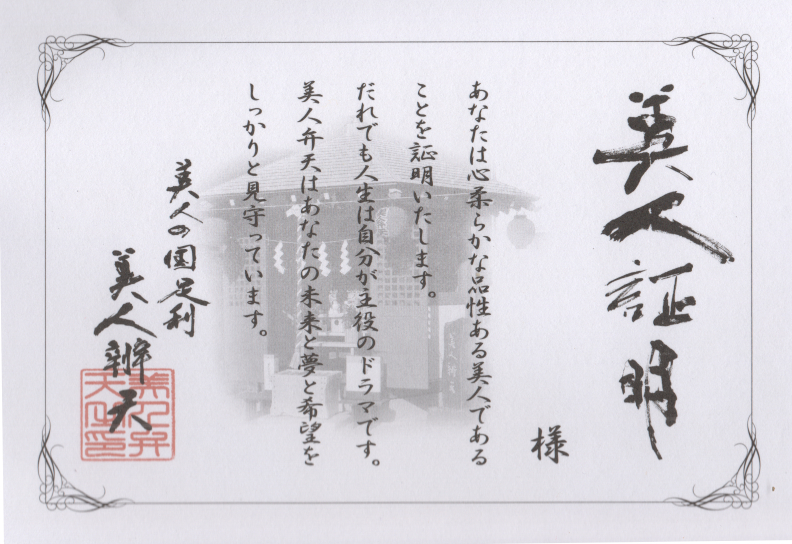 美人証明
様
あなたは心柔らかな品性ある美人である
ことを証明いたします。
だれでも人生は自分が主役のドラマです。
美人弁天はあなたの未来と夢と希望を
しっかりと見守っています。
美人の国足利
美人辨天
美人弁天之印